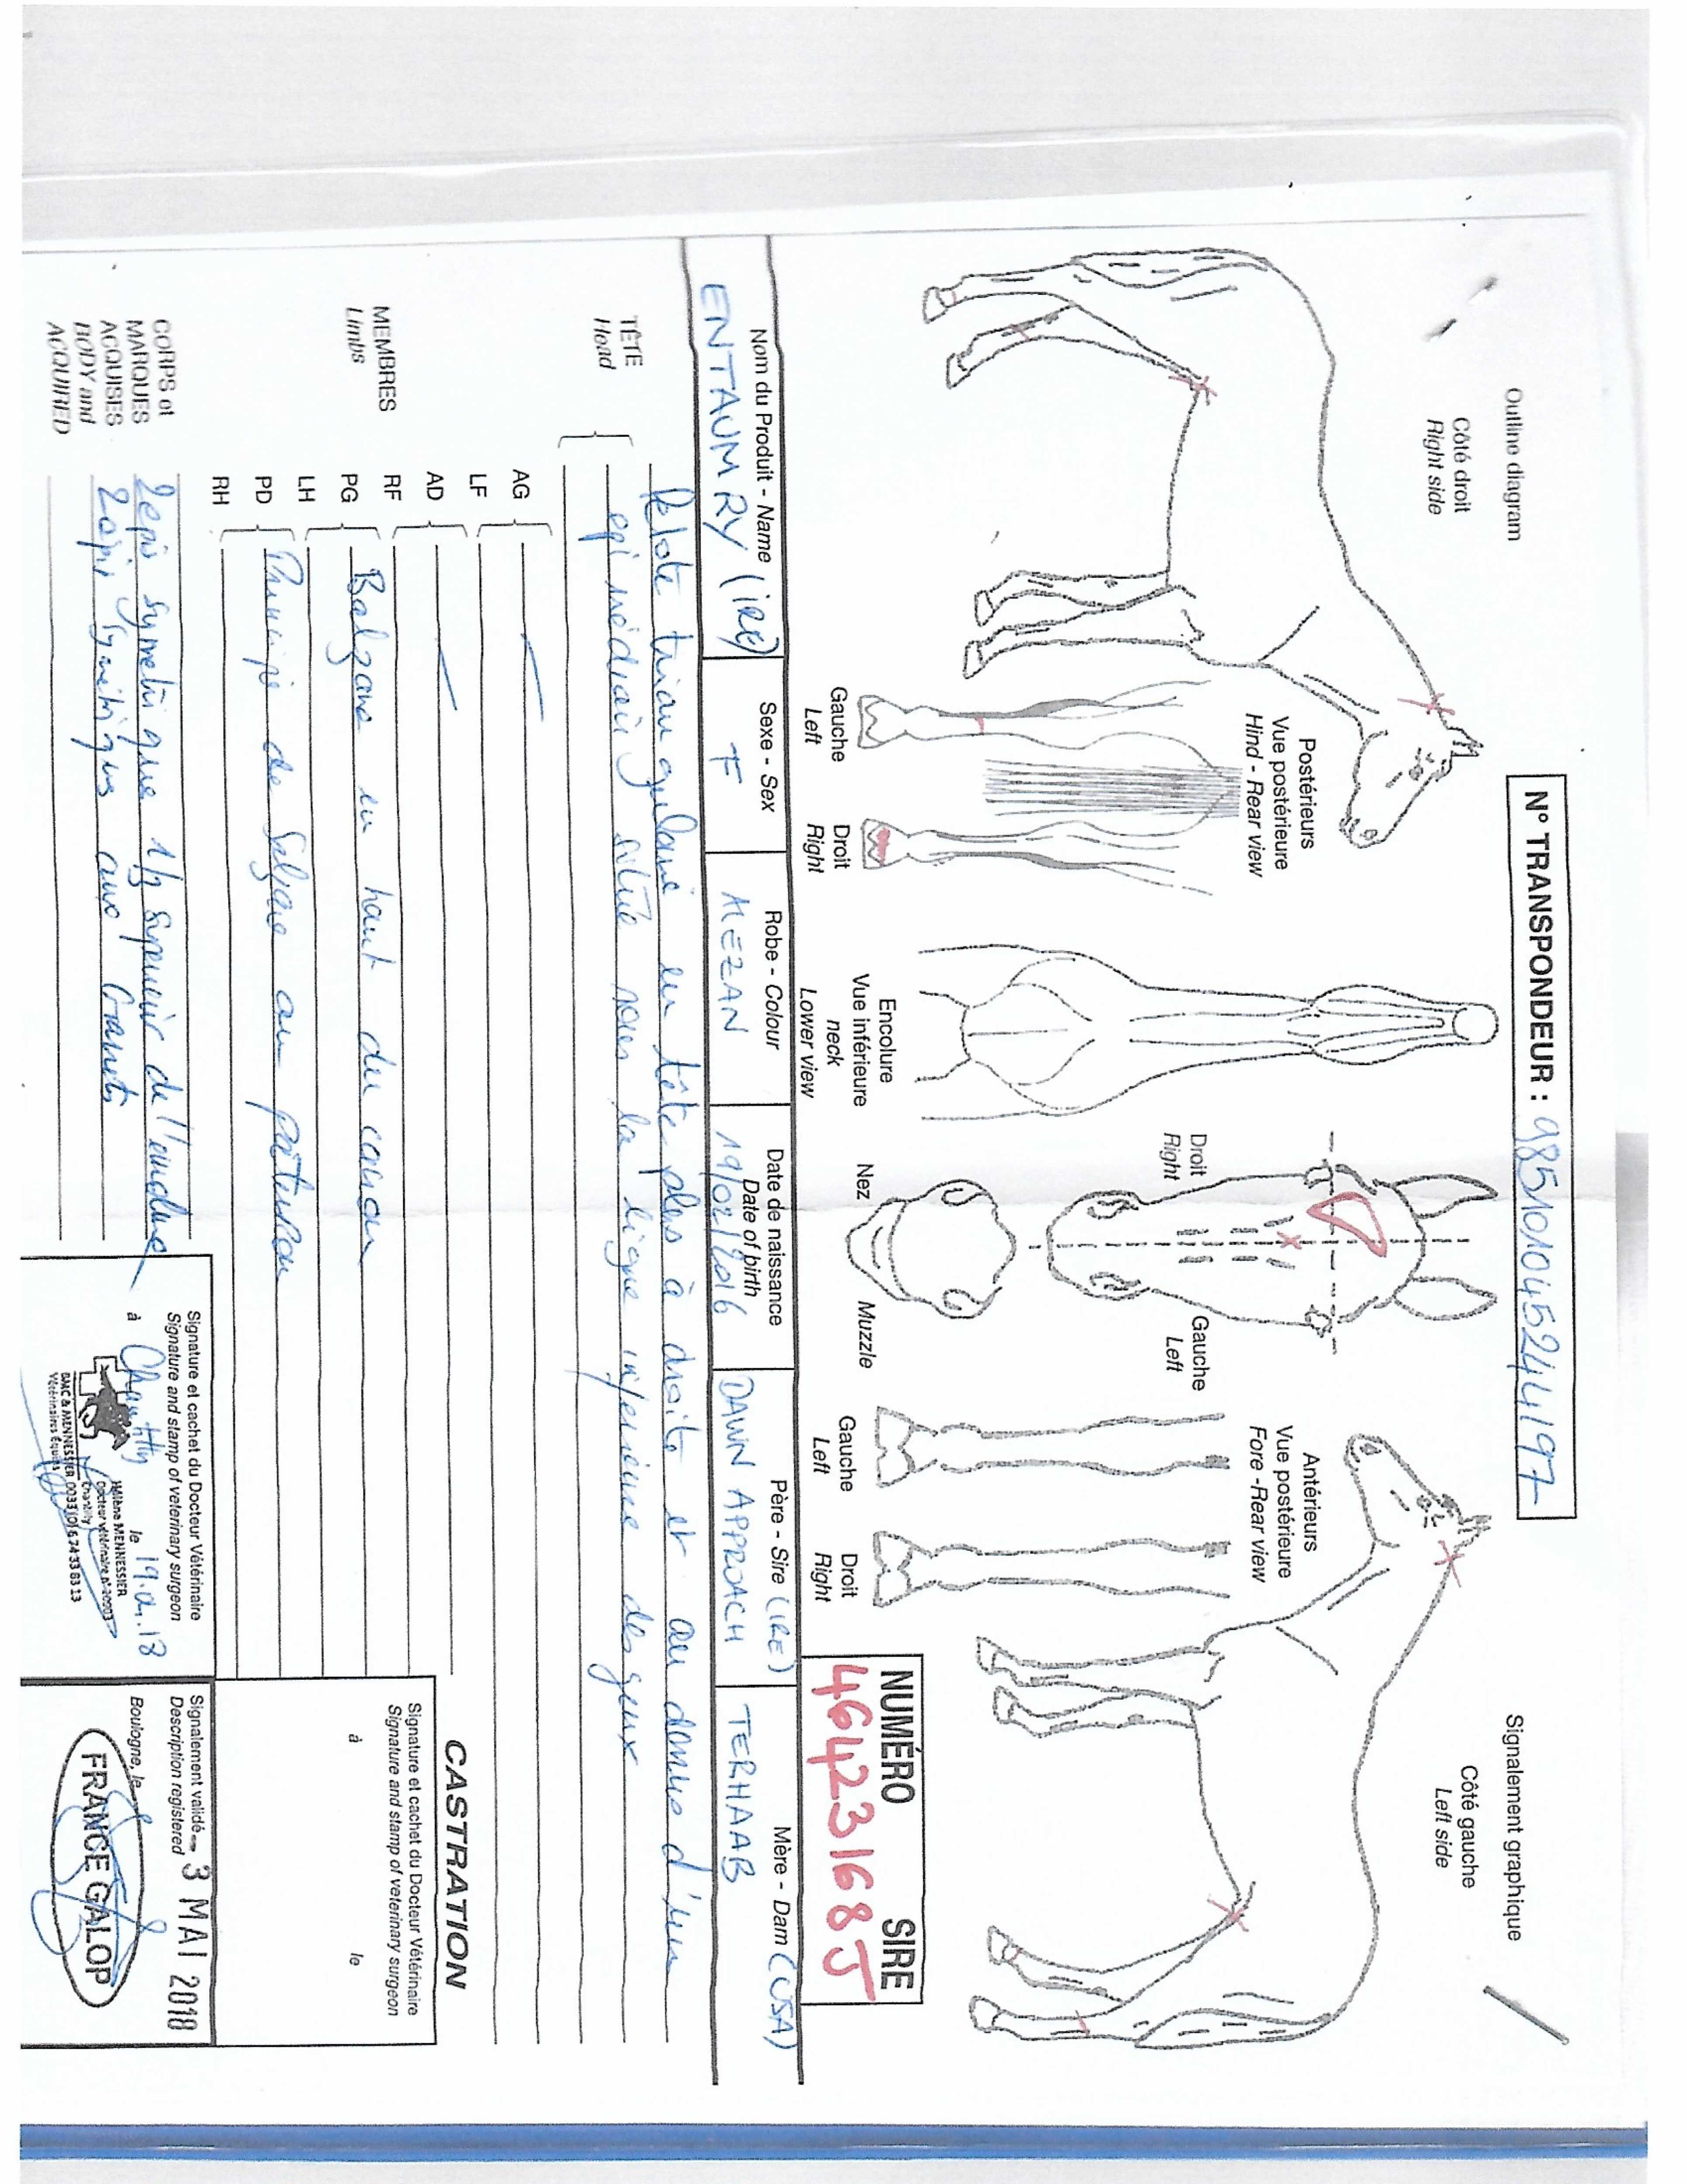 Outline diagram
Côté droit
Right side
N° TRANSPONDEUR : 985101045244197
Signalement graphique
Côté gauche
Left side
Postérieurs
Vue postérieure
Hind - Rear view
Gauche
Left
Droit
Right
Encolure
Vue inférieure
neck
Lower view
Droit
Right
Gauche
Left
Nez
Muzzle
Antérieurs
Vue postérieure
Fore - Rear view
Gauche
Left
Droit
Right
NUMÉRO SIRE
46423168J
Nom du Produit - Name
ENTAUMRY (IRE)
Sexe - Sex
F
Robe - Colour
ALEZAN
Date de naissance
Date of birth
19/02/2016
Père - Sire (IRE)
DAWN APPROACH
Mère - Dam (USA)
TERHAAB
TÊTE
Head
Pelote triangulaire en tête plus à droite et au dessus d'un
épi médian situé sous la ligne inférieure des yeux
MEMBRES
Limbs
AG
LF
AD
RF
PG
LH
Balzane en haut du canon
PD
RH
Principe de balzane au paturon
CORPS et
MARQUES
ACQUISES
BODY and
ACQUIRED
2 épis symétrique 1/3 supérieur de l'encolure
2 épis symétriques aux grassets
CASTRATION
Signature et cachet du Docteur Vétérinaire
Signature and stamp of veterinary surgeon
à
le
Signature et cachet du Docteur Vétérinaire
Signature and stamp of veterinary surgeon
à Chantilly le
Hélène MENNESSIER
Docteur vétérinaire n° 20003
Chantilly
BMC & MENNESSIER 0033 (0)6 74 33 63 13
Vétérinaires Équins
Signalement validé - 3 MAI 2018
Description registered
Boulogne, le
FRANCE GALOP